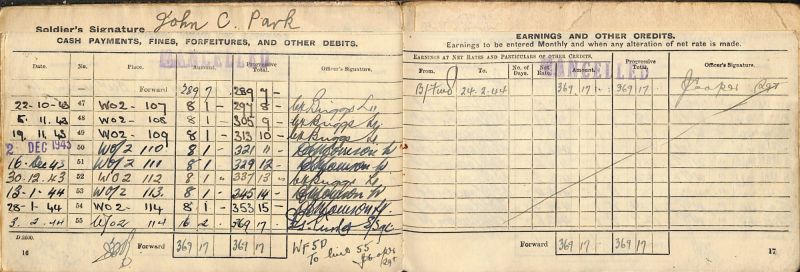 Soldier's Signature John C. Park
CASH PAYMENTS, FINES, FORFEITURES, AND OTHER DEBITS.
CANCELLED
Date. No. Place. Amount. Progressive Total. Officer's Signature.
Forward 289 7 - 289 7 -
22-10-43 47 WO2 - 107 8 1 - 297 8 -
5.11.43 48 WO2 - 108 8 1 - 305 9 -
19.11.43 49 WO2 - 109 8 1 - 313 10 -
2 DEC 1943 50 WO/2 110 8 1 - 321 11
16-Dec 43 51 WO/2 111 8 1 - 329 12 -
30.12.43 52 WO2 112 8 1 - 337 13 -
13-1-44 53 WO/2 113. 8 1 - 345 14 -
28-1-44 54 WO2 - 114 8 1 - 353 15 -
3. 2. 44 55 WO2 114 16 2 369 17
D.2600.
Forward 369 17 369 17 WF5D
To line 55
16
EARNINGS AND OTHER CREDITS.
Earnings to be entered Monthly and when any alteration of net rate is made.
EARNINGS AT NET RATES AND PARTICULARS OF OTHER CREDITS.
CANCELLED
From. To. No. of Days. Net Rate Amount. Progressive Total. Officer's Signature.
B/Fwd 24-2-44 369 17 - 369 17 Cooper Sgt
Forward 369 17 369 17
17